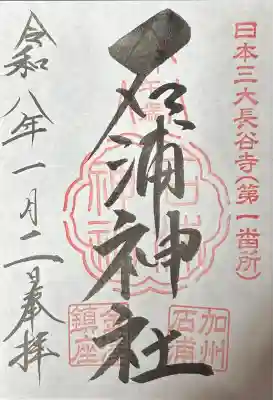 日本三大長谷寺(第一番所)
石浦神社
加州
石浦
鎮座
令和八年一月二日奉拝